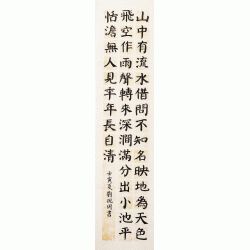 山中有流水借問不知名映地為天色
飛空作雨聲轉來深澗滿分出小池平
恬澹無人見年年長自清
壬寅夏劉書